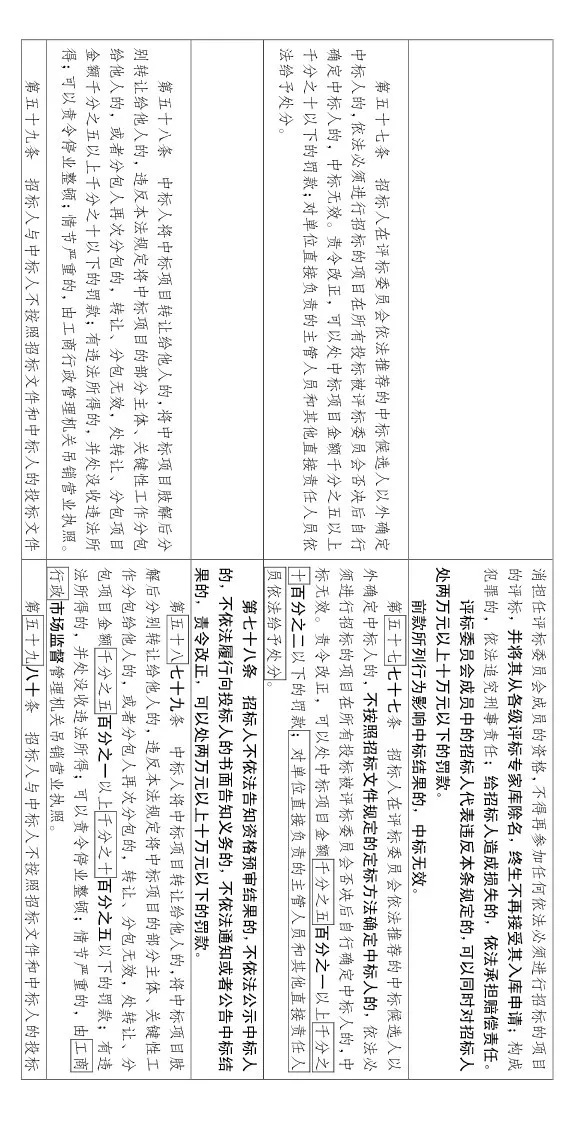 消担任评标委员会成员的资格,不得再参加任何依法必须进行招标的项目
的评标,并将其从各级评标专家库除名,终生不再接受其入库申请;构成
犯罪的,依法追究刑事责任;给招标人造成损失的,依法承担赔偿责任。
评标委员会成员中的招标人代表违反本条规定的,可以同时对招标人
处两万元以上十万元以下的罚款。
前款所列行为影响中标结果的,中标无效。
第五十七条 招标人在评标委员会依法推荐的中标候选人以外确定
中标人的,依法必须进行招标的项目在所有投标被评标委员会否决后自行
确定中标人的,中标无效。责令改正,可以处中标项目金额千分之五以上
千分之十以下的罚款;对单位直接负责的主管人员和其他直接责任人员依
法给予处分。
第五十七七十七条 招标人在评标委员会依法推荐的中标候选人以
外确定中标人的,不按照招标文件规定的定标方法确定中标人的,依法必
须进行招标的项目在所有投标被评标委员会否决后自行确定中标人的,中
标无效。责令改正,可以处中标项目金额千分之五百分之一以上千分之
十百分之二以下的罚款;对单位直接负责的主管人员和其他直接责任人
员依法给予处分。
第七十八条 招标人不依法告知资格预审结果的,不依法公示中标人
的,不依法履行向投标人的书面告知义务的,不依法通知或者公告中标结
果的,责令改正,可以处两万元以上十万元以下的罚款。
第五十八条 中标人将中标项目转让给他人的,将中标项目肢解后分
别转让给他人的,违反本法规定将中标项目的部分主体、关键性工作分包
给他人的,或者分包人再次分包的,转让、分包无效,处转让、分包项目
金额千分之五以上千分之十以下的罚款;有违法所得的,并处没收违法所
得;可以责令停业整顿;情节严重的,由工商行政管理机关吊销营业执照。
第五十八七十九条 中标人将中标项目转让给他人的,将中标项目肢
解后分别转让给他人的,违反本法规定将中标项目的部分主体、关键性工
作分包给他人的,或者分包人再次分包的,转让、分包无效,处转让、分
包项目金额千分之五百分之一以上千分之十百分之五以下的罚款;有违
法所得的,并处没收违法所得;可以责令停业整顿;情节严重的,由工商
行政市场监督管理机关吊销营业执照。
第五十九条 招标人与中标人不按照招标文件和中标人的投标文件
第五十九八十条 招标人与中标人不按照招标文件和中标人的投标